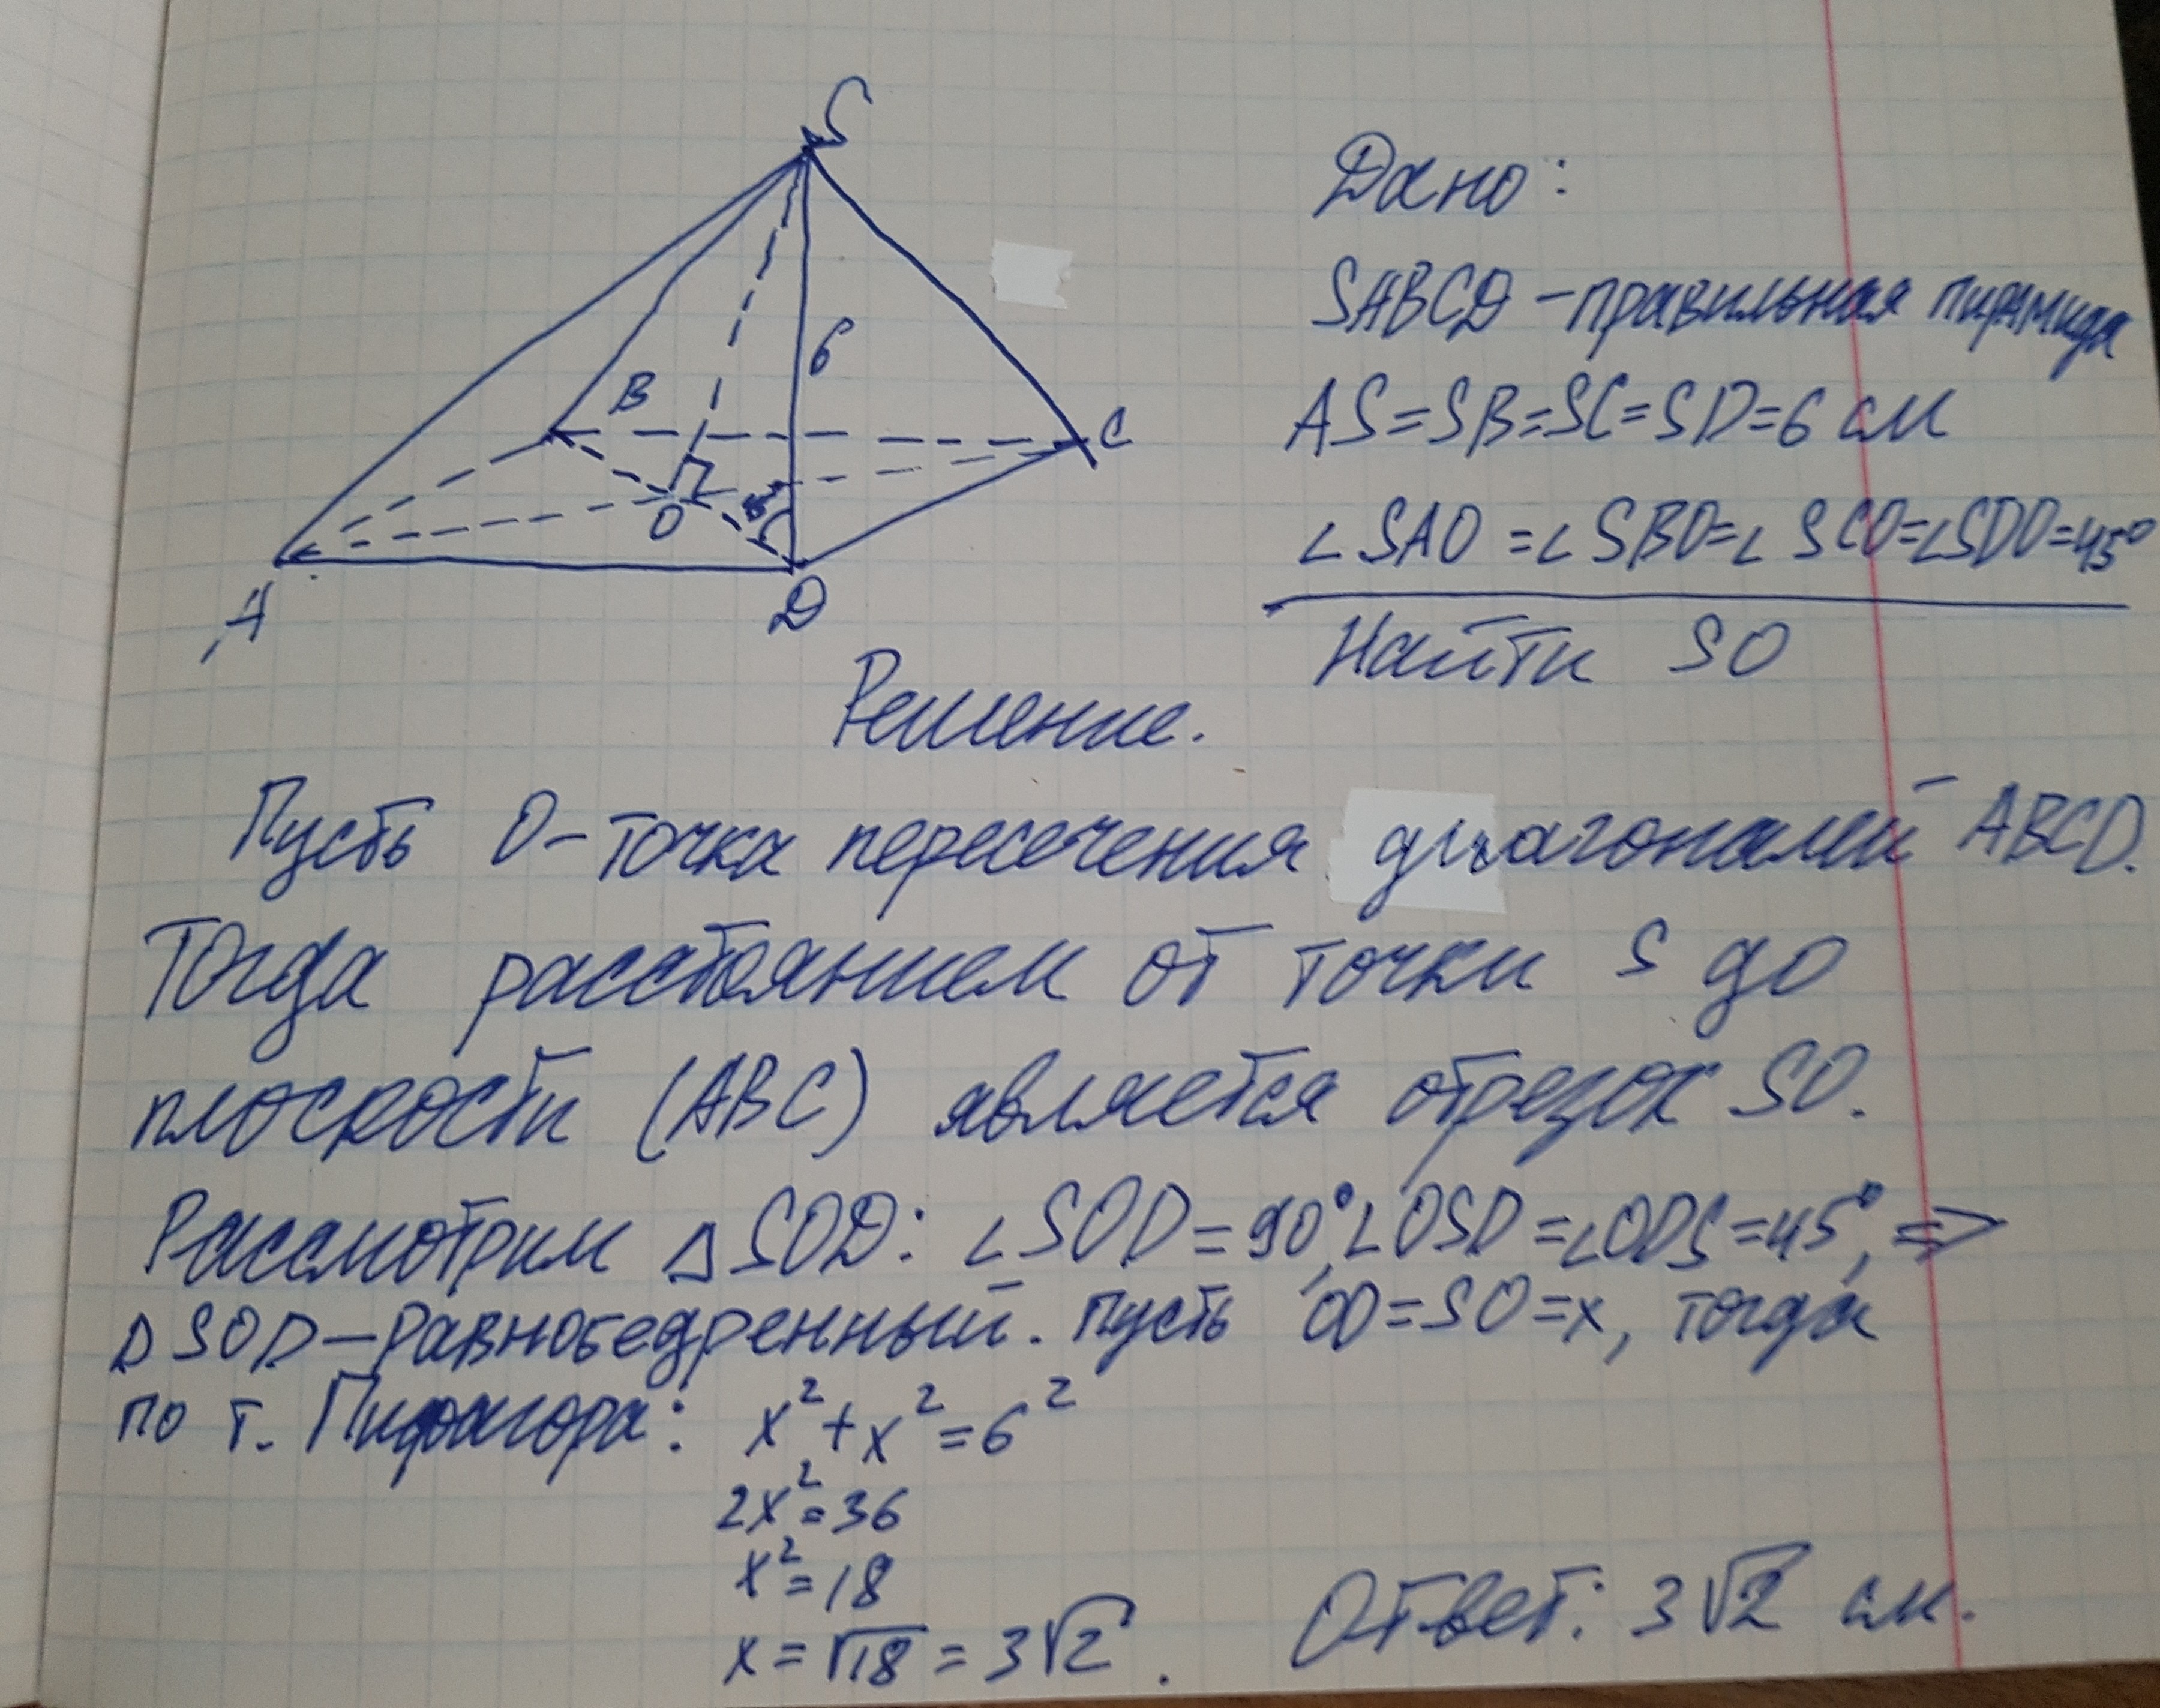 S
Дано:
SABCD – правильная пирамида
6
B
AS=SB=SC=SD=6 см
C
O
45°
∠SAO =∠SBO=∠SCO=∠SDO=45°
A
D
Найти SO
Решение.
Пусть O – точка пересечения диагоналей ABCD.
Тогда расстоянием от точки S до
плоскости (ABC) является отрезок SO.
Рассмотрим △SOD: ∠SOD=90°, ∠OSD=∠ODS=45°, ⇒
△SOD – равнобедренный. Пусть OD=SO=x, тогда
по т. Пифагора: x²+x²=6²
2x²=36
x²=18
x=√18=3√2.
Ответ: 3√2 см.